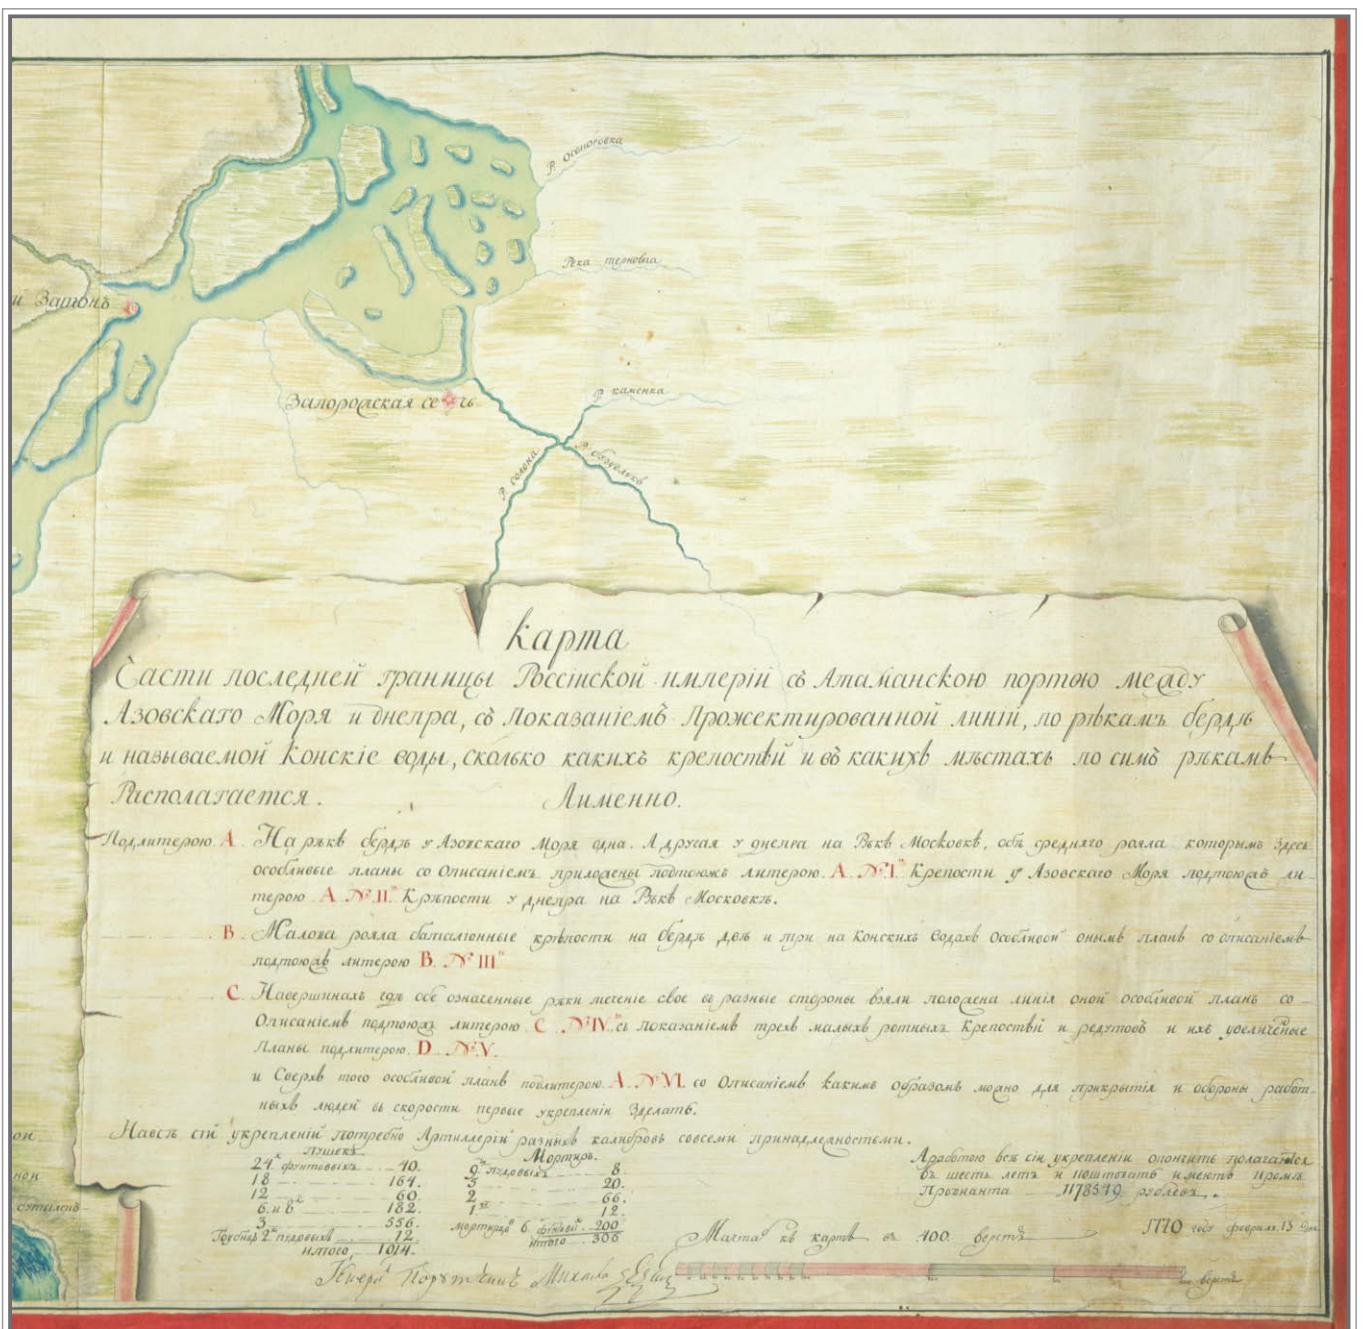 Р. осокоровка
Река терновка
и Затонъ
Р. каменка
Запорожская сечъ
Р. солона
Р. базувлукъ
Карта
Части последней границы Россіиской империй съ Атаманскою портою между
Азовскаго Моря и днепра, съ показаніемъ прожектированной линий, по рѣкамъ бердѣ
и называемой Конскіе воды, сколько какихъ крепостей и въ какихъ мѣстахъ по симъ рѣкамъ
Располагается. Аименно.
Подлитерою. А. На рѣкѣ бердѣ у Азовскаго Моря одна. А другая у днепра на Рѣкѣ Московкѣ, обѣ средняго рояла которымъ здесь
особливые планы со Описаніемъ приложены подтоюжъ литерою. А. №. I. Крепости у Азовскаго Моря подтоюжъ ли-
терою А. №. II. Крѣпости у днепра на Рѣкѣ Московкѣ.
В. Малова рояла баталіонные крѣпости на бердѣ двѣ и три на Конскихъ Водахъ Особливой онымъ планъ со описаніемъ
подтоюжъ литерою В. № III
С. Навершинахъ гдѣ обе означенные рѣки течение свое въ разные стороны взяли положена линія оной особливой планъ со
Описаніемъ подтоюжъ литерою С №IV съ показаніемъ трехъ малыхъ ротныхъ Крепостей и редутовъ и ихъ увеличеные
планы подлитерою. D №V.
и Сверхъ того особливой планъ подлитерою. А. №VI. со Описаніемъ какимъ образомъ можно для прикрытія и обороны работ-
ныхъ людей въ скорости первые укрепленіи зделать.
Навсѣ сіи укрепленій потребно Артиллерій разныхъ калибровъ совсеми принадлежностьми.
пушекъ
24 фунтовыхъ 40.
18 164.
12 60.
6. и 8 182.
3 556.
Гаубицъ 2 пудовыхъ 12.
итого 1014.
Мортиръ.
9 пудовыхъ 8.
5 20.
2 66.
1 12.
мортирцовъ 6 фунтовыхъ 200
итого 306
Аработою всѣ сіи укрепленіи окончить полагается
въ шесть летъ и коштовать имеютъ кромѣ
Провианта 1178549 рублевъ.
1770 году февраля 13 дня
Маштабъ къ картѣ въ 400. верстъ
верстъ
Инженеръ Порутчикъ Михаила